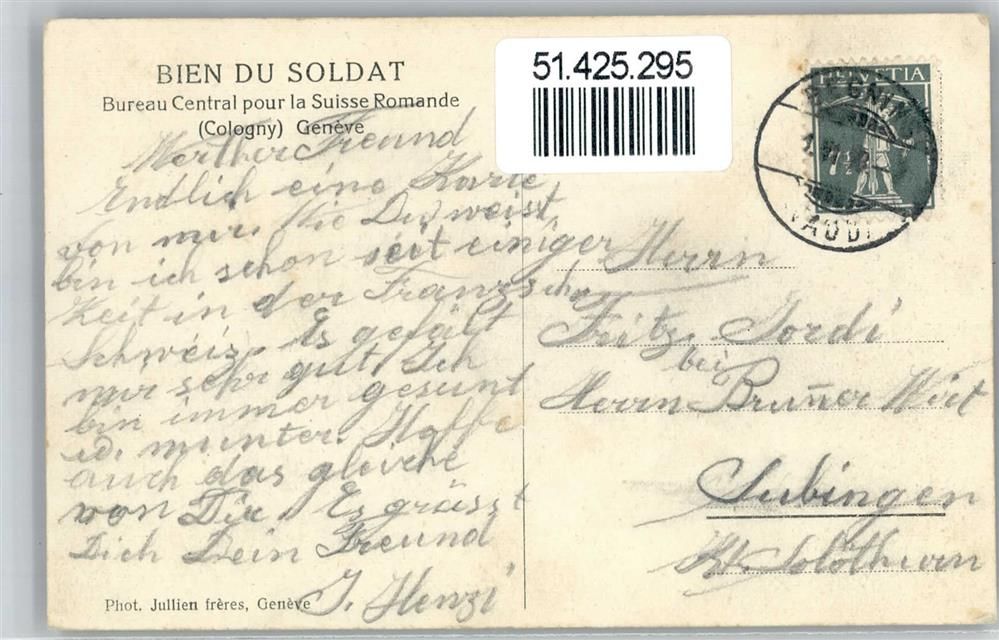 BIEN DU SOLDAT
Bureau Central pour la Suisse Romande
(Cologny) Genève
51.425.295
HELVETIA
7½
VAUD
Werther Freund
Endlich eine Karte
von mir. Wie Du weist,
bin ich schon seit einiger
Zeit in der Französchn
Schweiz. Es gefält
mir sehr gut. Ich
bin immer gesunt
u. munter. Hoffe
auch das gleiche
von Dir. Es grüsst
Dich Dein Freund
J. Henzi
Herrn
Fritz Jordi
bei
Herrn Bruñer Wirt
Subingen
Kt. Solothurn
Phot. Jullien frères, Genève